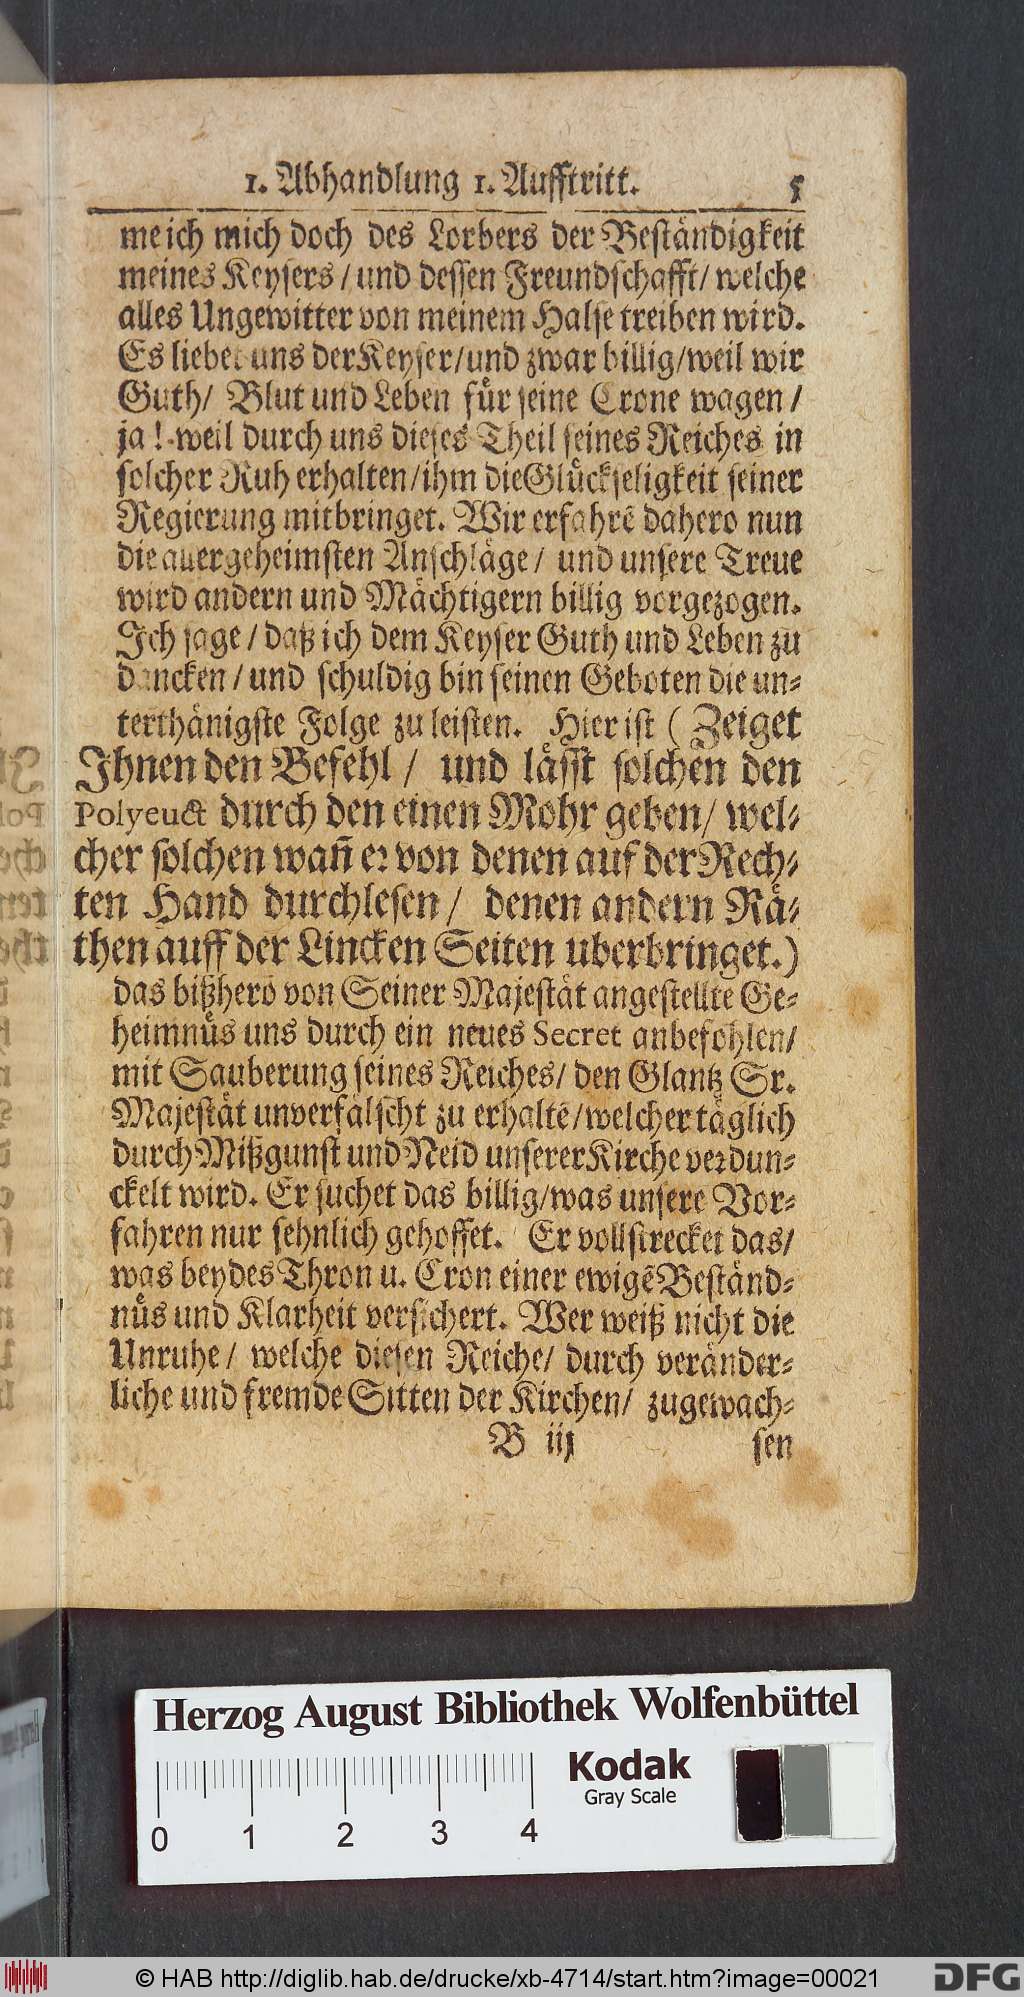 1. Abhandlung 1. Aufftritt. 5
me ich mich doch des Lorbers der Beständigkeit
meines Keysers / und dessen Freundschafft / welche
alles Ungewitter von meinem Halse treiben wird.
Es liebet uns der Keyser / und zwar billig / weil wir
Guth / Blut und Leben für seine Crone wagen /
ja ! weil durch uns dieses Theil seines Reiches in
solcher Ruh erhalten / ihm die Glückseligkeit seiner
Regierung mitbringet. Wir erfahrē dahero nun
die allergeheimsten Anschläge / und unsere Treue
wird andern und Mächtigern billig vorgezogen.
Ich sage / daß ich dem Keyser Guth und Leben zu
dancken / und schuldig bin seinen Geboten die un-
terthänigste Folge zu leisten. Hier ist ( Zeiget
Ihnen den Befehl / und lässt solchen den
Polyeuct durch den einen Mohr geben / wel-
cher solchen wañ er von denen auf der Rech-
ten Hand durchlesen / denen andern Rä-
then auff der Lincken Seiten uberbringet.)
das bißhero von Seiner Majestät angestellte Ge-
heimnüs uns durch ein neues Secret anbefohlen /
mit Sauberung seines Reiches / den Glantz Sr.
Majestät unverfälscht zu erhaltē / welcher täglich
durch Mißgunst und Neid unserer Kirche verdun-
ckelt wird. Er suchet das billig / was unsere Vor-
fahren nur sehnlich gehoffet. Er vollstrecket das /
was beydes Thron u. Cron einer ewigē Beständ-
nüs und Klarheit versichert. Wer weiß nicht die
Unruhe / welche diesen Reiche / durch veränder-
liche und fremde Sitten der Kirchen / zugewach-
B iij sen
Herzog August Bibliothek Wolfenbüttel
Kodak
Gray Scale
0 1 2 3 4
© HAB http://diglib.hab.de/drucke/xb-4714/start.htm?image=00021
DFG